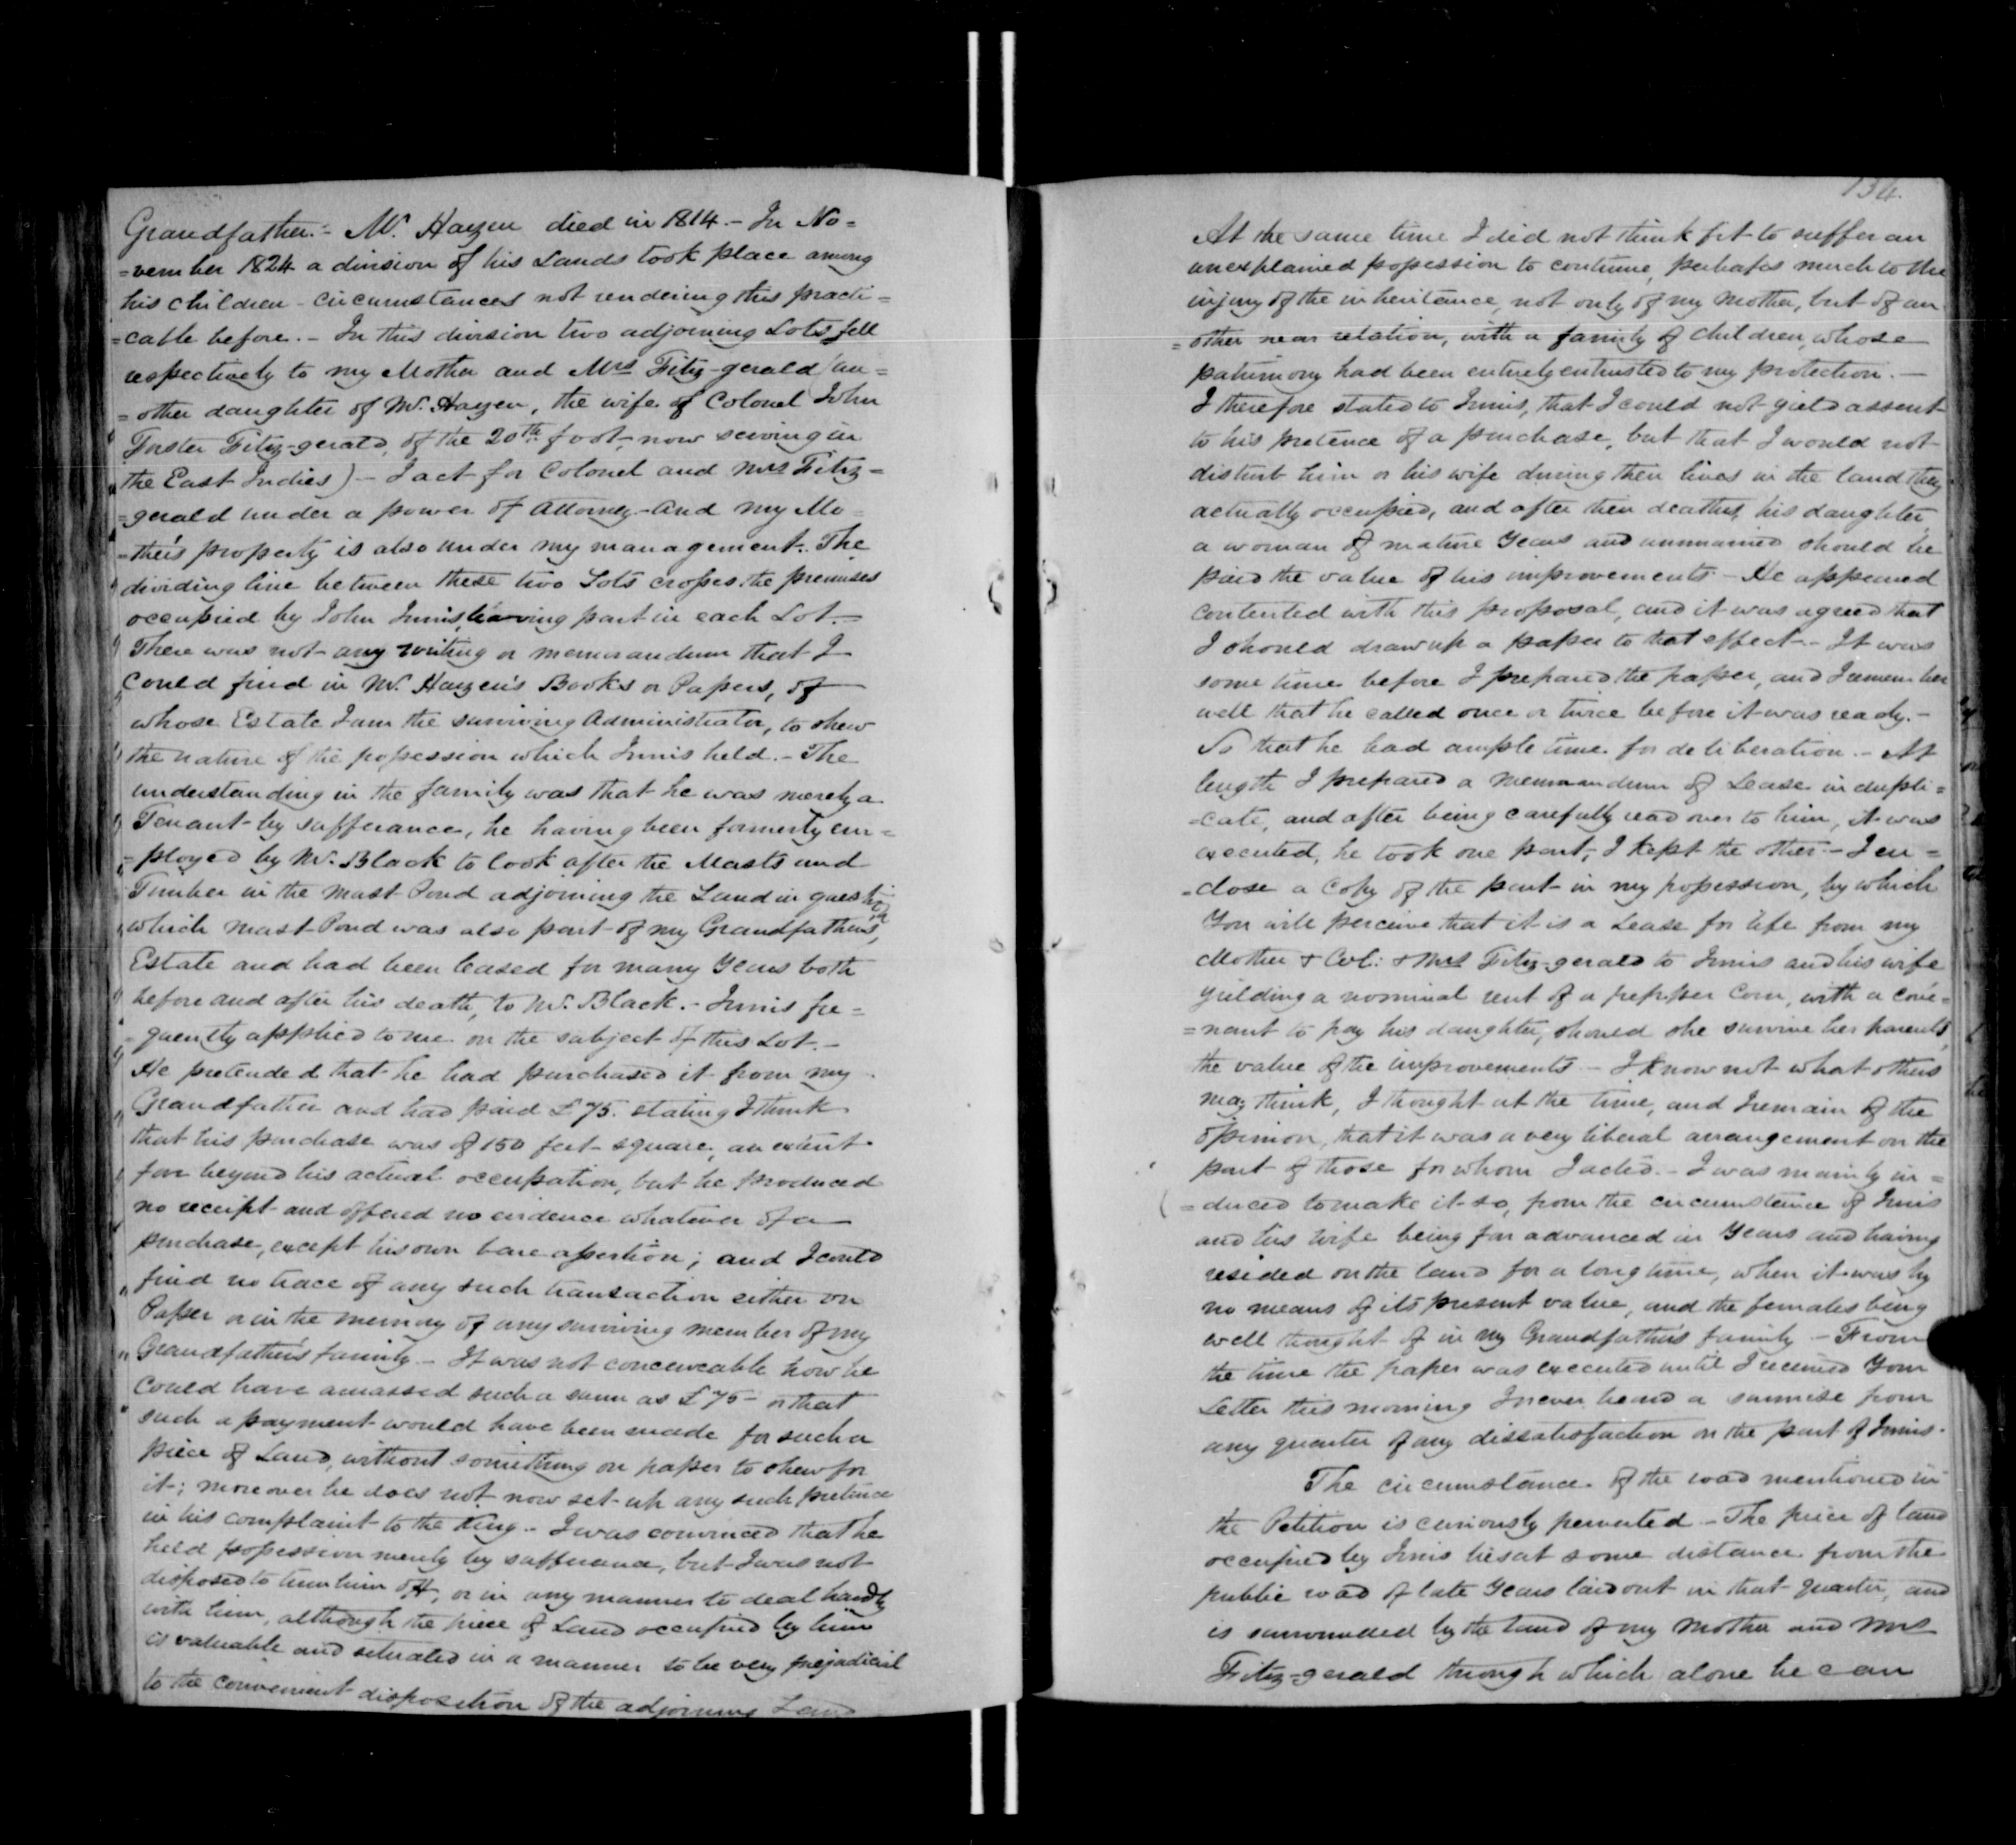 Grandfather.- Mr. Hazen died in 1814.- In No=
=vember 1824 a division of his Lands took place among
his children - circumstances not rendering this practi=
=cable before.- In this division two adjoining Lots fell
respectively to my Mother and Mrs Fitz-gerald (an=
=other daughter of Mr. Hazen, the wife of Colonel John
Forster Fitz-gerald, of the 20th foot, now serving in
the East Indies) - I act for Colonel and Mrs Fitz=
=gerald under a power of Attorney - And my Mo=
=ther's property is also under my management. The
dividing line between these two Lots crosses the premises
occupied by John Innis, leaving part in each Lot.-
There was not any writing or memorandum that I
could find in Mr. Hazen's Books or Papers, of
whose Estate I am the surviving Administrator, to shew
the nature of the possession which Innis held.- The
understanding in the family was that he was merely a
Tenant by sufferance, he having been formerly em=
=ployed by Mr. Black to look after the Masts and
Timber in the Mast Pond adjoining the Land in question
which mast Pond was also part of my Grandfather's,
Estate and had been leased for many Years both
before and after his death, to Mr. Black.- Innis fre=
=quently applied to me on the subject of this Lot.-
He pretended that he had purchased it from my
Grandfather and had paid £75. stating I think
that his purchase was of 150 feet square, an extent
far beyond his actual occupation, but he produced
no receipt and offered no evidence whatever of a
purchase, except his own bare assertion; and I could
find no trace of any such transaction either on
Paper or in the memory of any surviving member of my
Grandfather's family.- It was not conceiveable how he
could have amassed such a sum as £75 - or that
such a payment would have been made for such a
piece of Land, without something on paper to shew for
it; moreover he does not now set up any such pretence
in his complaint to the King.- I was convinced that he
held possession merely by sufferance, but I was not
disposed to turn him off, or in any manner to deal hardly
with him, although the piece of Land occupied by him
is valuable and situated in a manner to be very prejudicial
to the convenient disposition of the adjoining Land
134.
At the same time I did not think fit to suffer an
unexplained possession to continue, perhaps much to the
injury of the inheritance, not only of my Mother, but of an
=other near relation, with a family of children, whose
patrimony had been entirely entrusted to my protection.-
I therefore stated to Innis, that I could not yield assent
to his pretence of a purchase, but that I would not
disturb him or his wife during their lives in the land they
actually occupied, and after their deaths, his daughter,
a woman of mature Years and unmarried should be
paid the value of his improvements - He appeared
contented with this proposal, and it was agreed that
I should draw up a paper to that effect.- It was
some time before I prepared the paper, and I remember
well that he called once or twice before it was ready.-
So that he had ample time for deliberation.- At
length I prepared a Memorandum of Lease in dupli=
=cate, and after being carefully read over to him, it was
executed, he took one part, I kept the other - I en=
=close a Copy of the part in my possession, by which
You will perceive that it is a Lease for life from my
Mother & Col: & Mrs Fitz-gerald to Innis and his wife
yeilding a nominal rent of a pepper Corn, with a cove=
=nant to pay his daughter, should she survive her parents,
the value of the improvements - I know not what others
may think, I thought at the time, and I remain of the
opinion, that it was a very liberal arrangement on the
part of those for whom I acted.- I was mainly in=
=duced to make it so, from the circumstance of Innis
and his wife being far advanced in Years and having
resided on the land for a long time, when it was by
no means of its present value, and the females being
well thought of in my Grandfather's family - From
the time the paper was executed until I received Your
Letter this morning I never heard a surmise from
any quarter of any dissatisfaction on the part of Innis.
The circumstance of the road mentioned in
the Petition is curiously perverted - The piece of land
occupied by Innis lies at some distance from the
public road of late Years laid out in that quarter, and
is surrounded by the land of my Mother and Mrs
Fitz-gerald through which alone he can